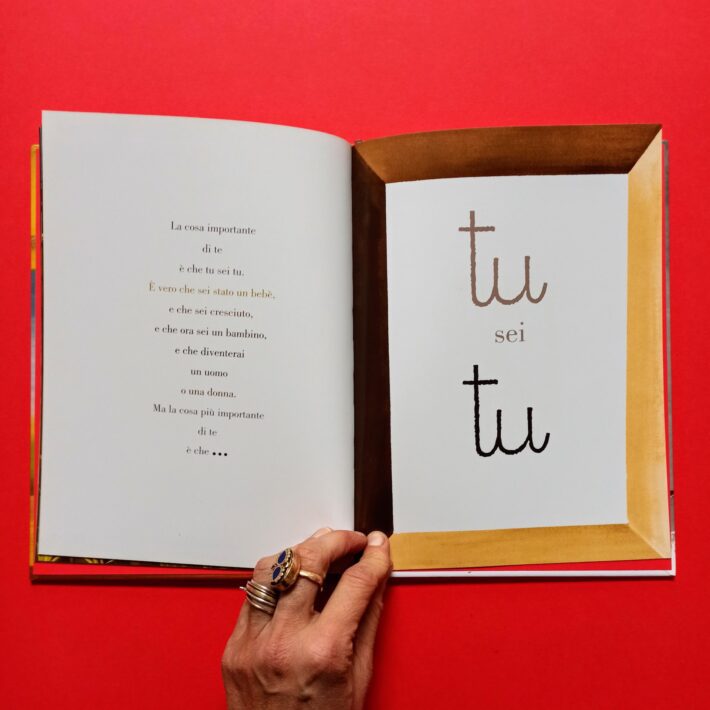 La cosa importante
di te
è che tu sei tu.
È vero che sei stato un bebè,
e che sei cresciuto,
e che ora sei un bambino,
e che diventerai
un uomo
o una donna.
Ma la cosa più importante
di te
è che ...
tu
sei
tu